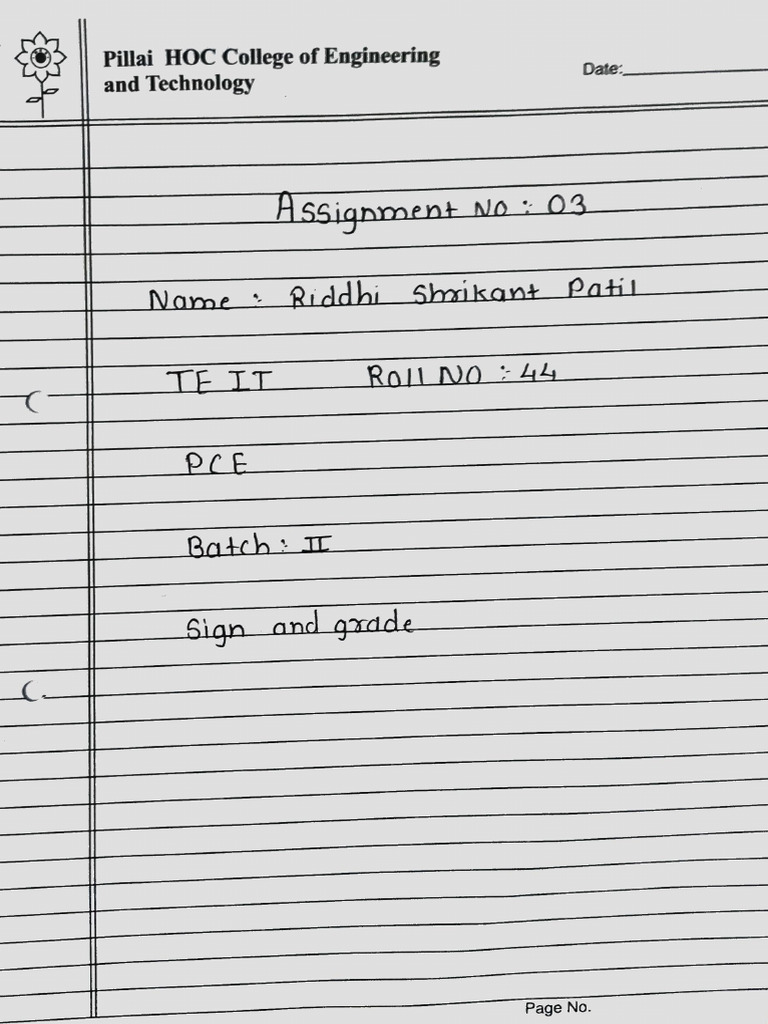 Pillai HOC College of Engineering
and Technology
Date:
Assignment No : 03
Name : Riddhi Shrikant Patil
TE IT Roll NO : 44
PCE
Batch : II
Sign and grade
Page No.